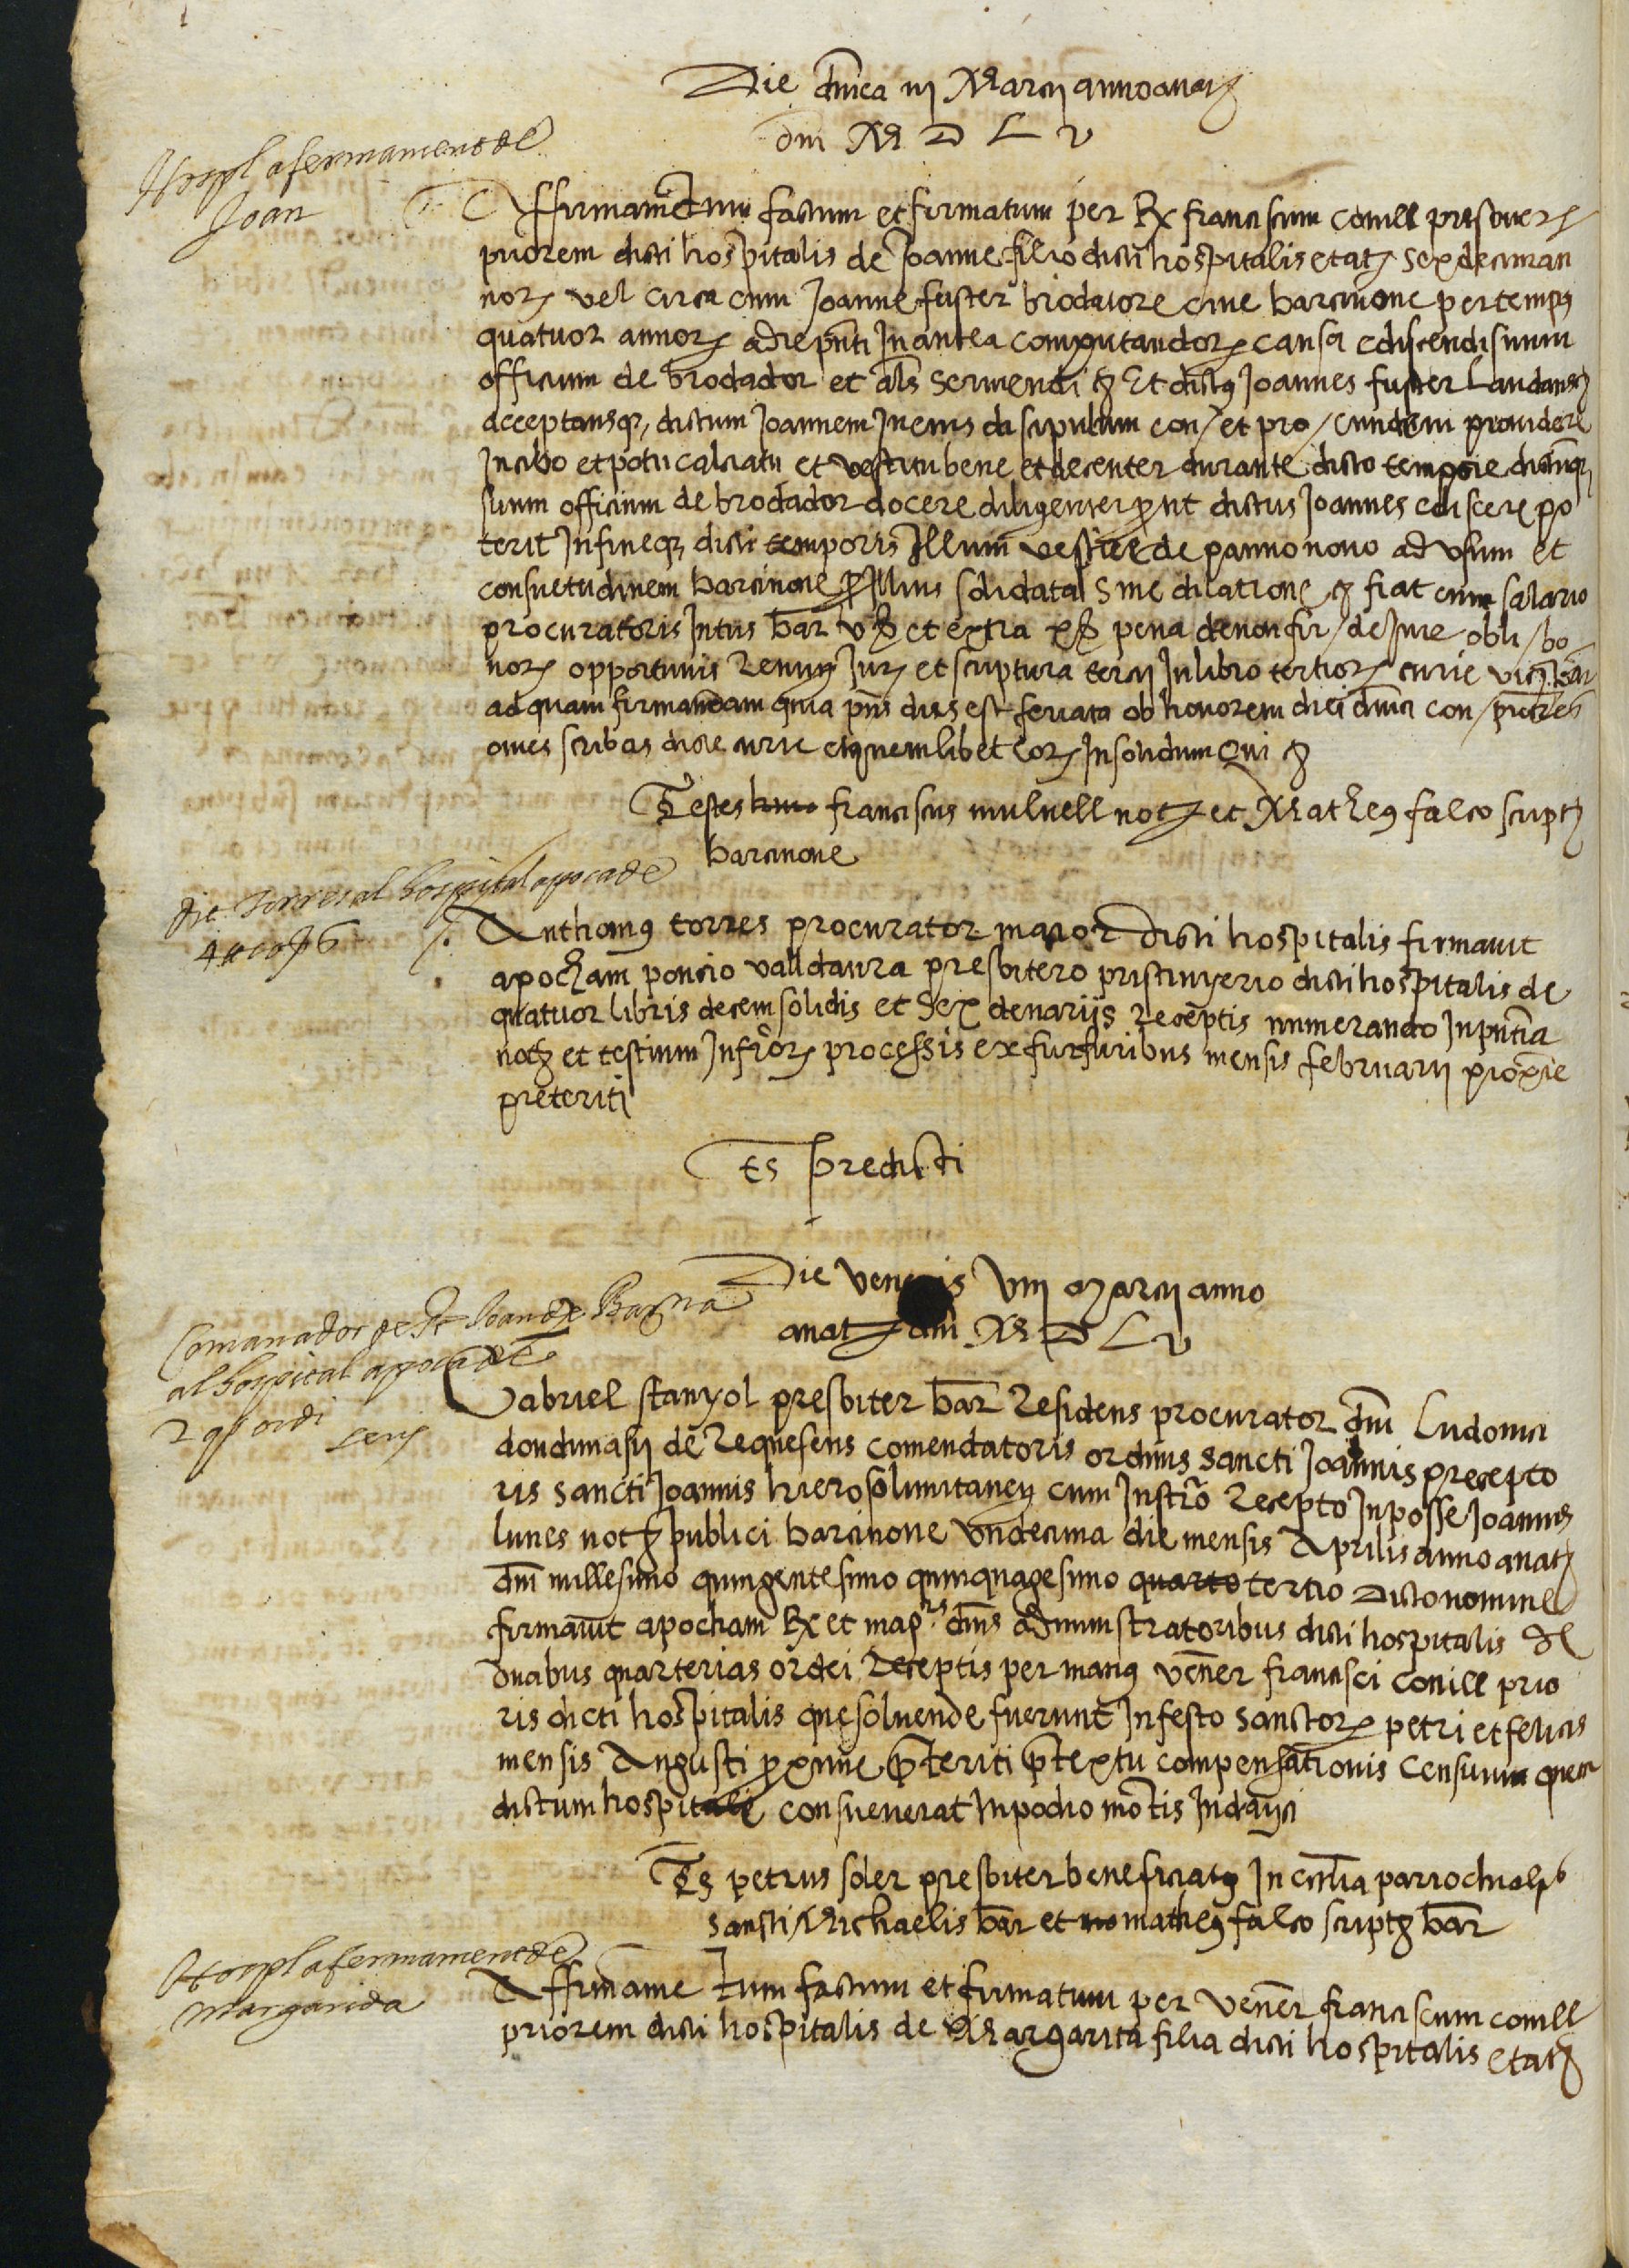 Die dnica iij Marcij anno a nat
dni M D L v
Hospl afermament de
Joan
Affirmamentum factum et firmatum per Rx franciscum conill presbiter
priorem dicti hospitalis de Joanne filio dicti hospitalis etat sexdecim an
nor vel circa cum Joanne fuster brodatore cive barcinone per temps
quatuor annor a die pnti in antea computandor causa ediscendi suum
officium de brodador et als serviendi Et dictus Joannes fuster laudans
acceptansq dictum Joannem in eius discipulum con / et pro / eundem providere
in cibo et potu calciatu et vestitu bene et decenter durante dicto tempore dictumq
suum officium de brodador docere diligenter prout dictus Joannes ediscere po
terit in fineq dicti temporis Illum vestire de panno novo ad usum et
consuetudinem barcinone pro Illius solidata Sine dilatione fiat cum salario
procuratoris Intus bar v ß et extra x ß pena de non fir / de Jure obli / bo
nor opportunis Renuns Jur et scriptura tercij In libro tertior curie vic bar
ad quam firmandam quia pns dies est feriata ob honorem diei dnici con / pretes
omes scribas dicte curie et quemlibet eor In solidum Qui
Testes huius franciscus mulnell not et Matheus falco script
barcinone
dit torres al hospital apoca de
4 ll 10 ß 6
Anthonius torres procurator maior dicti hospitalis firmavit
apocham poncio valldaura presbitero pristinyerio dicti hospitalis de
quatuor libris decem solidis et sex denariis Receptis numerando In pntia
not et testium Infror processis ex furfuribus mensis februarii proxie
preteriti
Ts predicti
Die veneris viij Marcij anno
a nat dni M D L v
Comanador de St Joan de Barna
al hospital apoca de
2 qs ordi
cens
Gabriel stanyol presbiter bar Residens procurator dni Ludovici
don dimasij de Requesens comendatoris ordinis Sancti Joannis precepto
ris Sancti Joannis hierosolimitaney cum Instro Recepto In posse Joannis
lunes not publici barcinone undecima die mensis Aprilis anno a nat
dni millesimo quingentesimo quinquagesimo quarto tertio Dicto nomine
firmavit apocham Rx et magcis dnis administratoribus dicti hospitalis de
duabus quarterias ordei Receptis per manus vener francisci conill prio
ris dicti hospitalis que solvende fuerunt In festo Sanctor petri et felicis
mensis Augusti proxime preteriti pretextu compensationis Censuum quem
dictum hospitale consueverat In podio montis Indayci
Ts petrus soler presbiter beneficiatus In ecclia parrochiali
Sancti Michaelis bar et no matheus falco script bar
Hospl afermament de
Margarida
Affirmamentum factum et firmatum per vener franciscum conill
priorem dicti hospitalis de Margarita filia dicti hospitalis etat